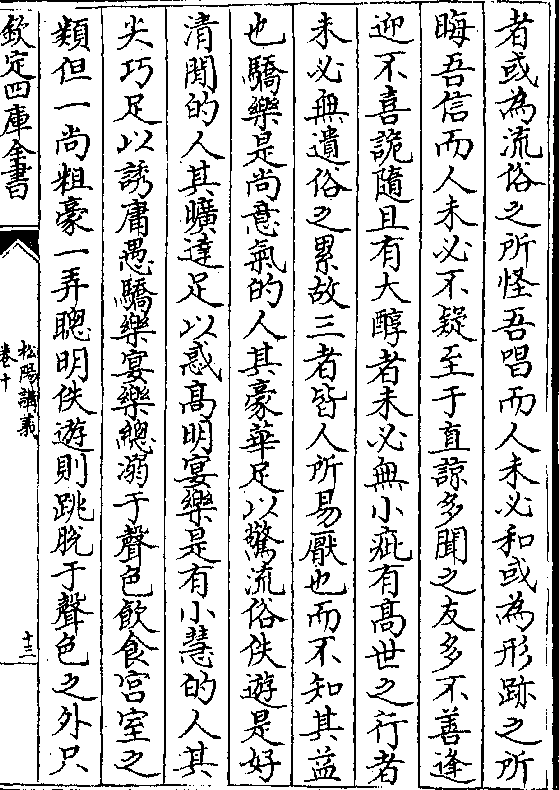 者或為流俗之所怪吾唱而人未必和或為形跡之所
晦吾信而人未必不疑至于直諒多聞之友多不善逢
迎不喜詭隨且有大醇者未必無小疵有髙世之行者
未必無遺俗之累故三者皆人所易厭也而不知其益
也驕樂是尚意氣的人其豪華足以驚流俗佚遊是好
清閒的人其曠達足以惑髙明宴樂是有小慧的人其
尖巧足以誘庸愚驕樂宴樂總溺于聲色飲食宫室之
類但一尚粗豪一弄聰明佚遊則跳脫于聲色之外只
欽定四庫全書
松陽講義
卷十
十三